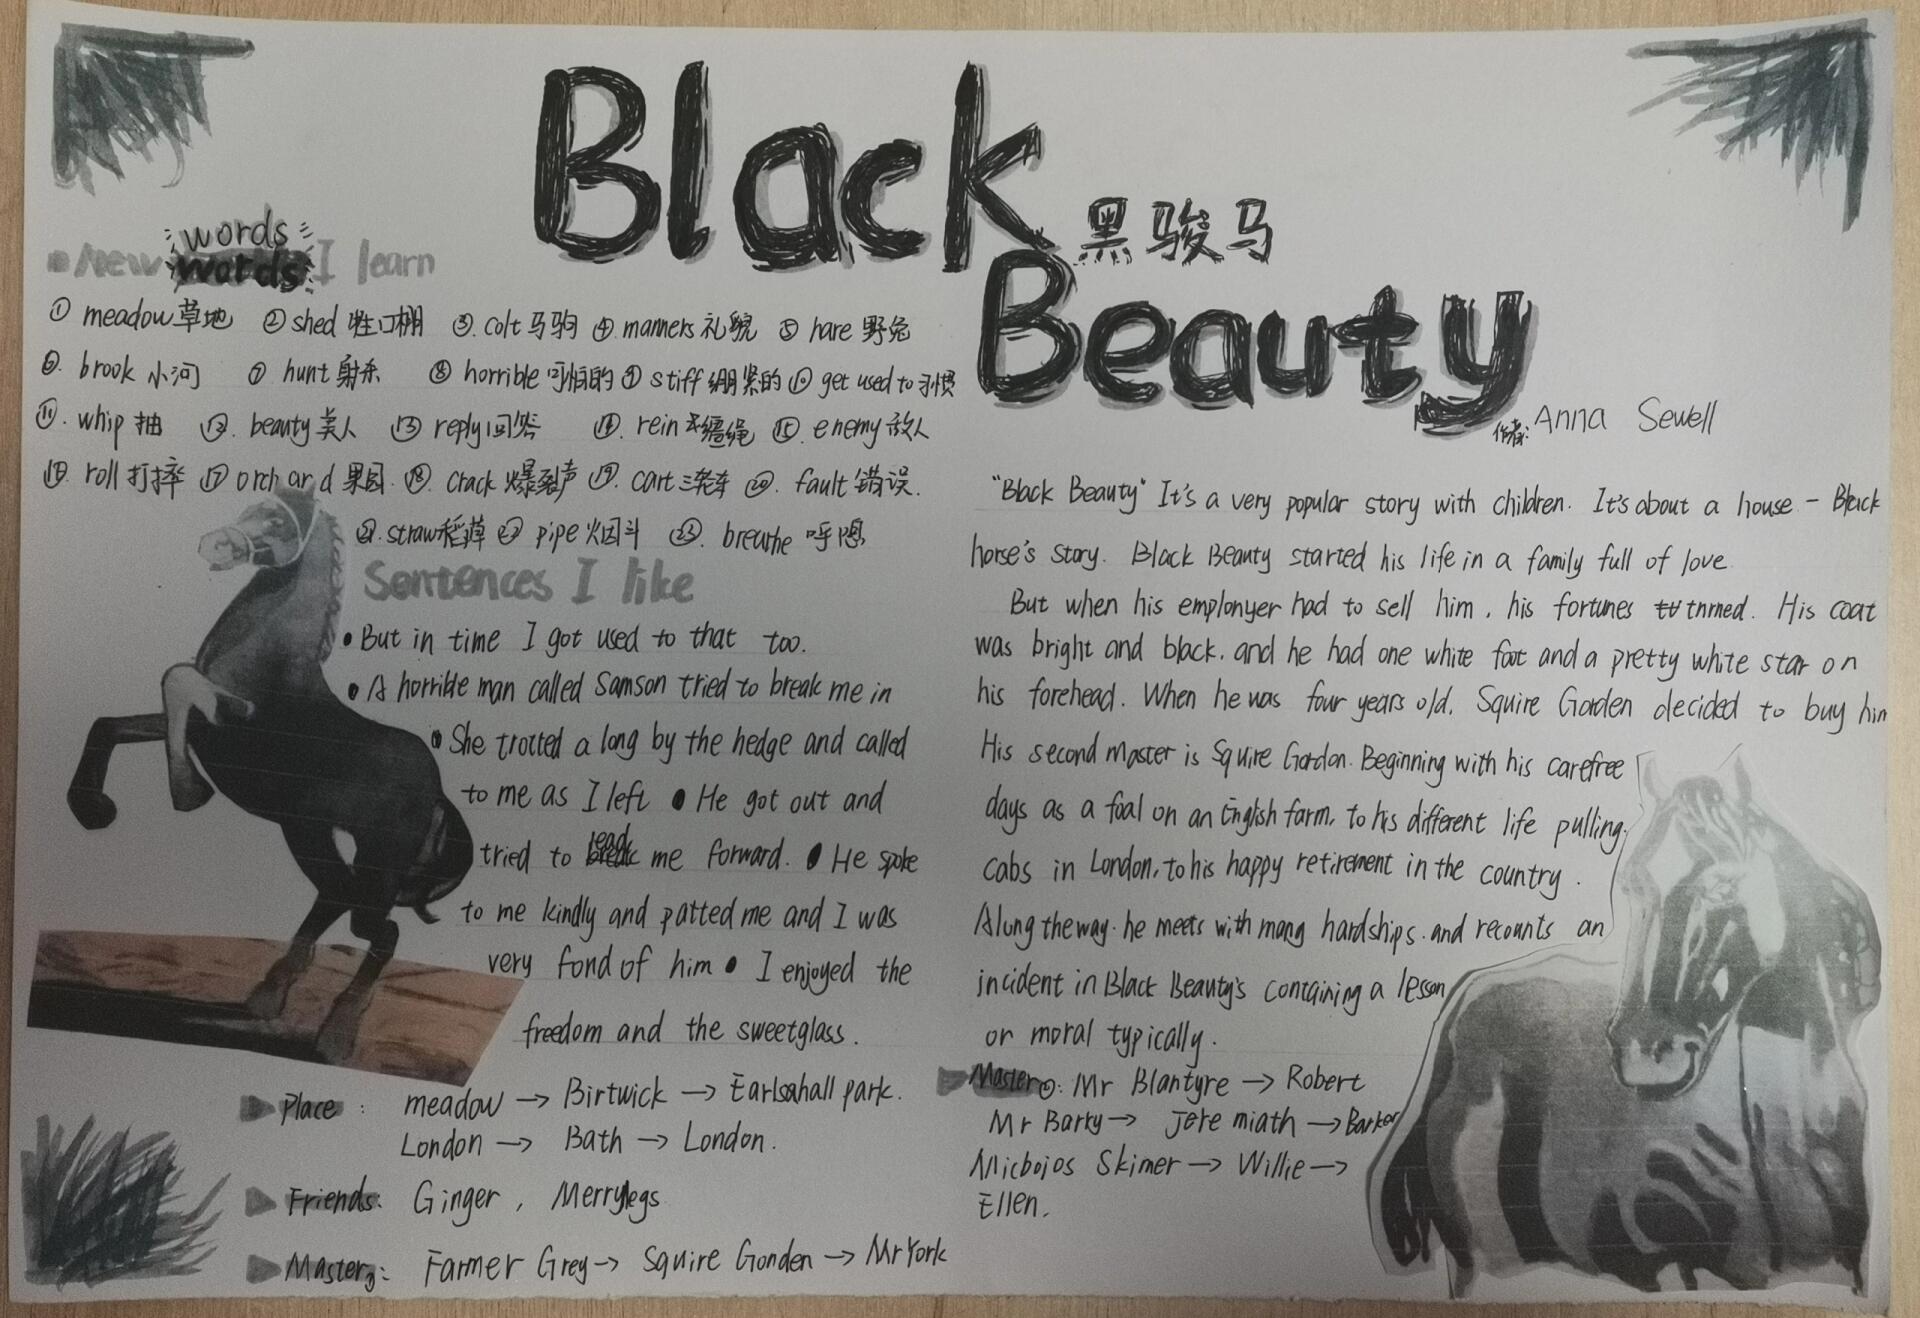 Black
黑骏马
Beauty
作者: Anna Sewell
words
New words I learn
① meadow 草地 ② shed 牲口棚 ③. colt 马驹 ④ manners 礼貌 ⑤ hare 野兔
⑥. brook 小河 ⑦ hunt 射杀 ⑧ horrible 可怕的 ⑨ stiff 绷紧的 ⑩ get used to 习惯
⑪. whip 抽 ⑫. beauty 美人 ⑬ reply 回答 ⑭. rein 缰绳 ⑮. enemy 敌人
⑯. roll 打摔 ⑰ orchard 果园 ⑱. crack 爆裂声 ⑲. cart 三轮车 ⑳. fault 错误.
㉑. straw 稻草 ㉒ pipe 烟斗 ㉓. breathe 呼吸
Sentences I like
• But in time I got used to that too.
• A horrible man called Samson tried to break me in
• She trotted a long by the hedge and called
to me as I left • He got out and
tried to lead me forward. • He spoke
to me kindly and patted me and I was
very fond of him • I enjoyed the
freedom and the sweetglass.
Place: meadow → Birtwick → Earlsahall park.
London → Bath → London.
Friends: Ginger, Merrylegs
Master①: Farmer Grey → Squire Gonden → Mr York
"Black Beauty" It's a very popular story with children. It's about a house - Black
horse's story. Black Beauty started his life in a family full of love.
But when his emplonyer had to sell him, his fortunes tnrned. His coat
was bright and black, and he had one white foot and a pretty white star on
his forehead. When he was four years old, Squire Gorden decided to buy him
His second master is Squire Gordon. Beginning with his carefree
days as a foal on an English farm, to his different life pulling
cabs in London, to his happy retirement in the country.
Along the way. he meets with many hardships. and recounts an
incident in Black Beauty's containing a lesson
or moral typically.
Master②: Mr Blantyre → Robert
Mr Barry → Jere miath → Barker
Nicbojos Skimer → Willie →
Ellen.